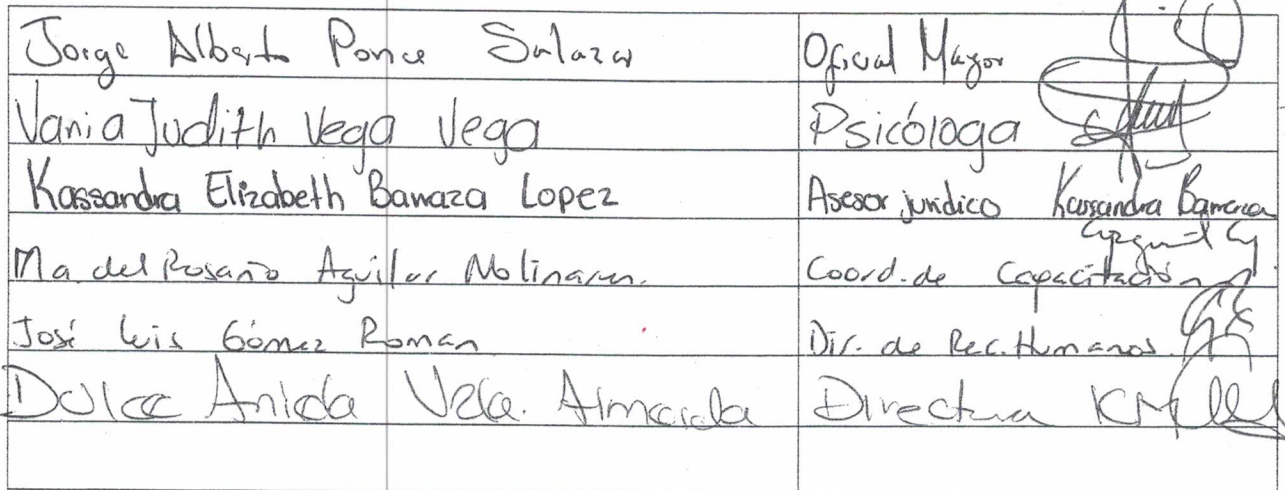 Jorge Alberto Ponce Salazar Oficial Mayor
Vania Judith Vega Vega Psicóloga
Kassandra Elizabeth Barraza Lopez Asesor jurídico Kassandra Barraza
Ma. del Rosario Aguilar Coord. de Capacitación
José Luis Gómez Roman Dir. de Rec. Humanos
Dulce Directora